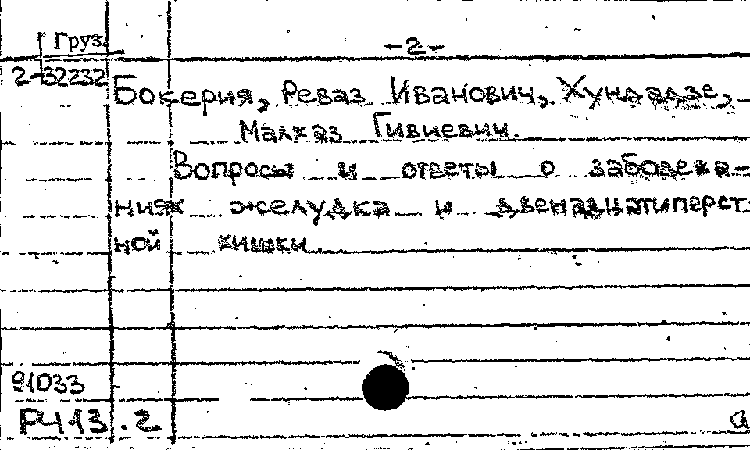 Груз. -2-
2-32232 Бокерия, Реваз Иванович, Хундадзе,
Малхаз Гивиевич.
Вопросы и ответы о заболева-
ниях желудка и двенадцатиперст-
ной кишки.
91033
Р413.2 а